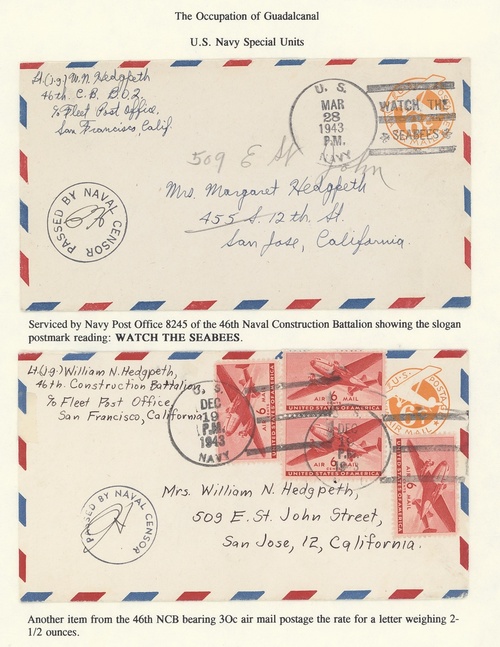 The Occupation of Guadalcanal
U.S. Navy Special Units
Lt.(j.g.) W.N. Hedgpeth
46th C.B. Bo2.
% Fleet Post Office,
San Francisco, Calif.
U. S.
MAR
28
1943
P.M.
NAVY
WATCH THE
SEABEES
AIR MAIL
509 E St John
PASSED BY NAVAL CENSOR
Mrs. Margaret Hedgpeth
455 S. 12th St.
San Jose, California.
Serviced by Navy Post Office 8245 of the 46th Naval Construction Battalion showing the slogan
postmark reading: WATCH THE SEABEES.
Lt.(j.g.) William N. Hedgpeth,
46th Construction Battalion
% Fleet Post Office
San Francisco, California
U. S.
DEC
19
P.M.
1943
NAVY
AIR 6¢ MAIL
UNITED STATES OF AMERICA
AIR 6¢ MAIL
UNITED STATES OF AMERICA
AIR 6¢ MAIL
UNITED STATES OF AMERICA
AIR 6¢ MAIL
UNITED STATES OF AMERICA
DEC
U.S. POSTAGE
AIR MAIL
PASSED BY NAVAL CENSOR
Mrs. William N. Hedgpeth,
509 E. St. John Street,
San Jose, 12, California.
Another item from the 46th NCB bearing 30c air mail postage the rate for a letter weighing 2-
1/2 ounces.